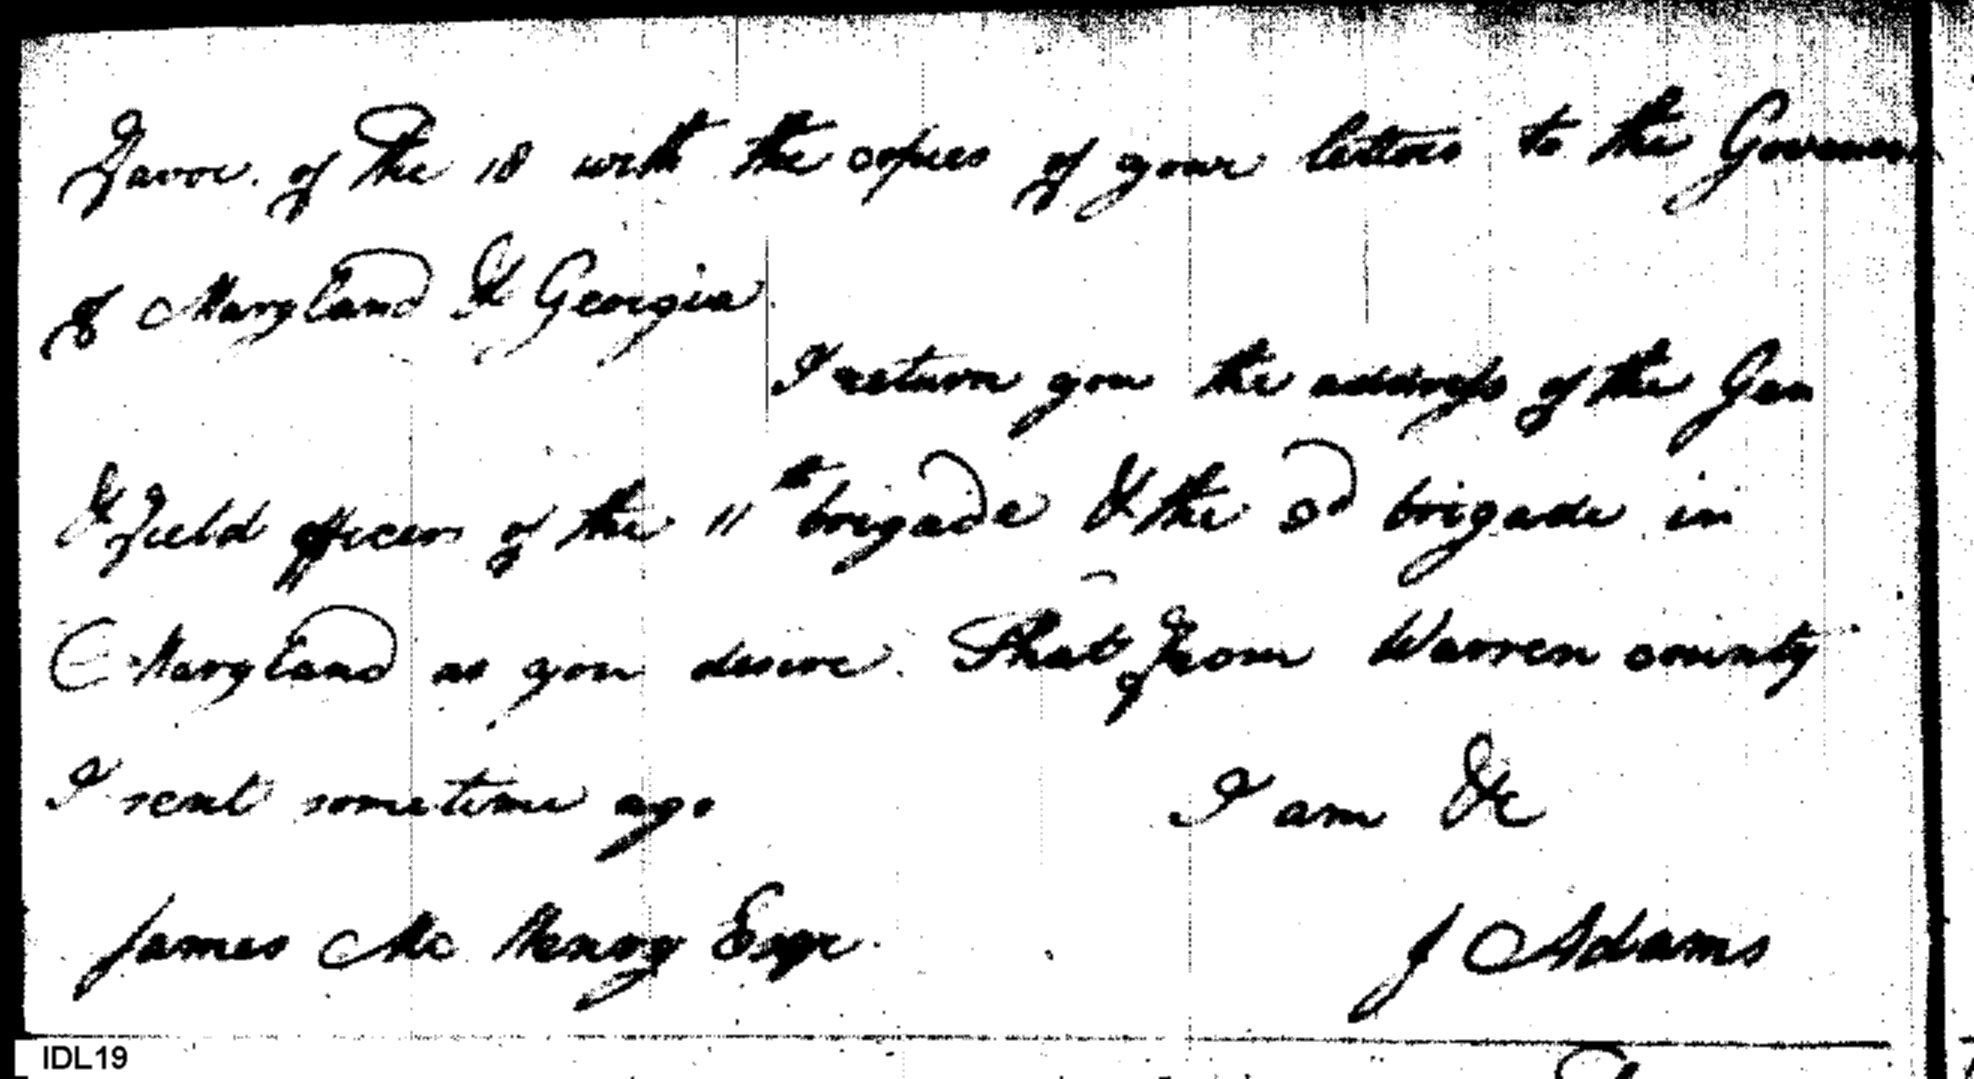 Favor. of the 18 with the copies of your letters to the Governors
of Maryland & Georgia
I return you the address of the Gen
& Field officers of the 11th brigade & the 3d brigade in
Maryland as you desire. That from Warren county
I sent sometime ago
I am &c
James McHenry Esqr.
J Adams
IDL19